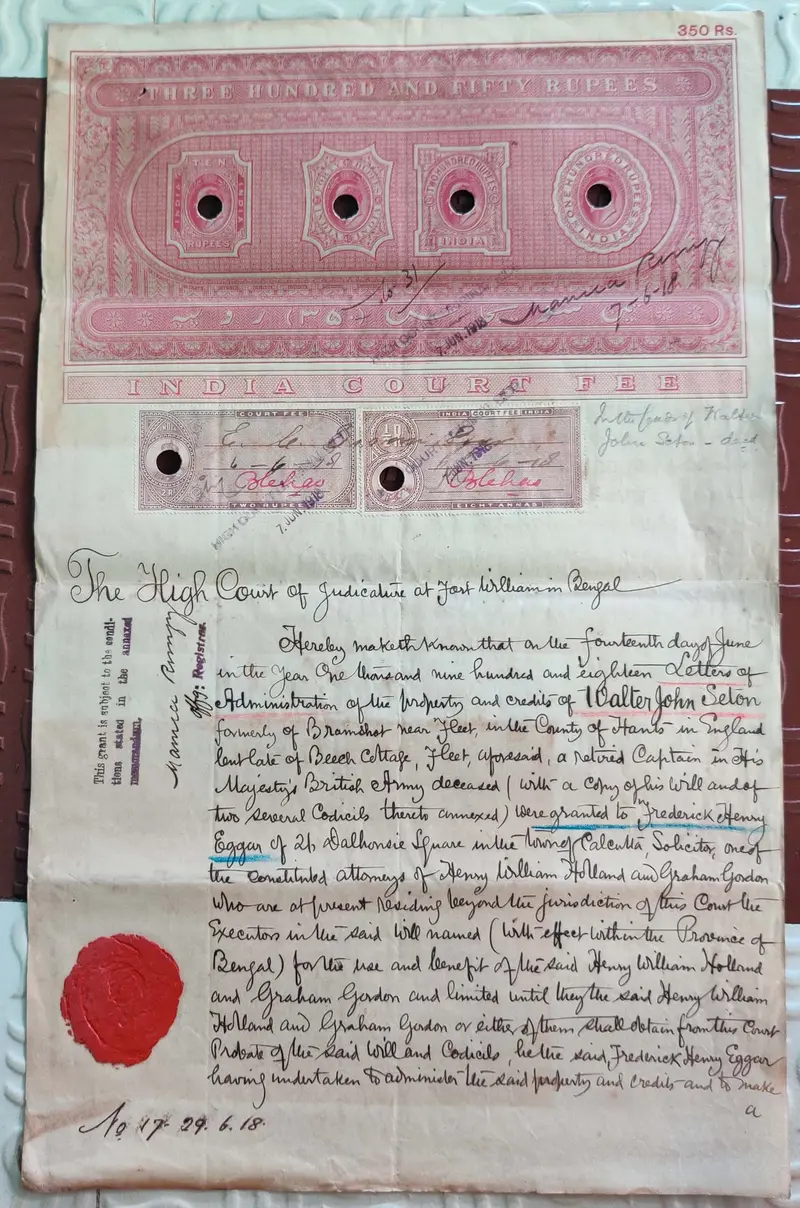 350 Rs.
THREE HUNDRED AND FIFTY RUPEES
TEN
INDIA INDIA
RUPEES
TWO HUNDRED RUPEES
INDIA
ONE HUNDRED RUPEES
INDIA
No 31
7-6-18
7 JUN. 1918
INDIA COURT FEE
COURT FEE
INDIA COURT FEE INDIA
6-6-18
6-18
TWO RUPEES
EIGHT ANNAS
HIGH COURT
7 JUN. 1918
In the goods of Walter
John Seton - deced
The High Court of Judicature at Fort William in Bengal
This grant is subject to the condi-
tions stated in the annexed
memorandum.
Offg: Registrar.
Hereby maketh Known that on the fourteenth day of June
in the Year One thousand nine hundred and eighteen Letters of
Administration of the property and credits of Walter John Seton
formerly of Bramshot near Fleet, in the County of Hants in England
but late of Beech Cottage, Fleet, aforesaid, a retired Captain in His
Majesty's British Army deceased (with a copy of his Will and of
two several Codicils thereto annexed) were granted to Frederick Henry
Eggar of 21, Dalhousie Square in the town of Calcutta, Solicitor, one of
the constituted attorneys of Henry William Holland and Graham Gordon
who are at present residing beyond the jurisdiction of this Court the
Executors in the said Will named (with effect within the Province of
Bengal) for the use and benefit of the said Henry William Holland
and Graham Gordon and limited until they the said Henry William
Holland and Graham Gordon or either of them shall obtain from this Court
Probate of the said Will and Codicils, he the said, Frederick Henry Eggar
having undertaken to administer the said property and credits and to make
a
No 17- 29.6.18.